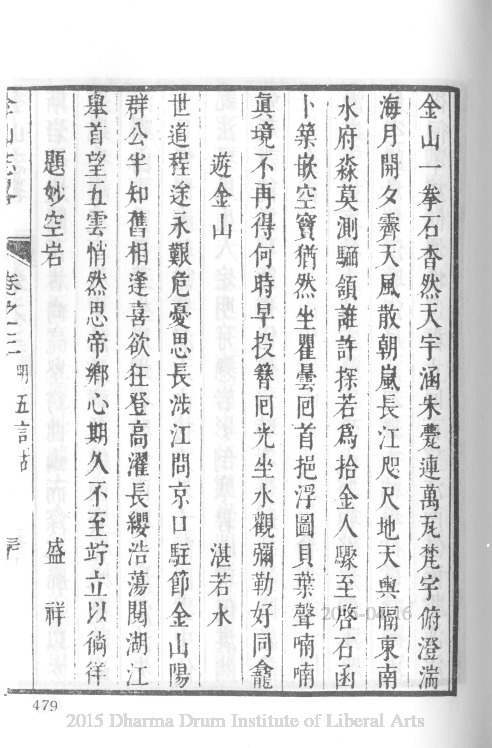 金山一拳石杳然天宇涵朱甍連萬瓦梵宇俯澄湍
海月開夕霽天風散朝嵐長江咫尺地天輿隔東南
水府淼莫測驪頷誰許探若為拾金人驟至啓石函
卜築嵌空寶猶然坐瞿曇回首挹浮圖貝葉聲喃喃
眞境不再得何時早投簪回光坐水觀彌勒好同龕
遊金山 湛若水
世道程途永艱危憂思長涉江問京口駐節金山陽
群公半知舊相逢喜欲狂登高濯長纓浩蕩閱湖江
舉首望五雲悄然思帝鄉心期久不至竚立以徜徉
題妙空岩 盛祥
金山志畧 卷之三 明五言古
479
2015-04-16
2015 Dharma Drum Institute of Liberal Arts